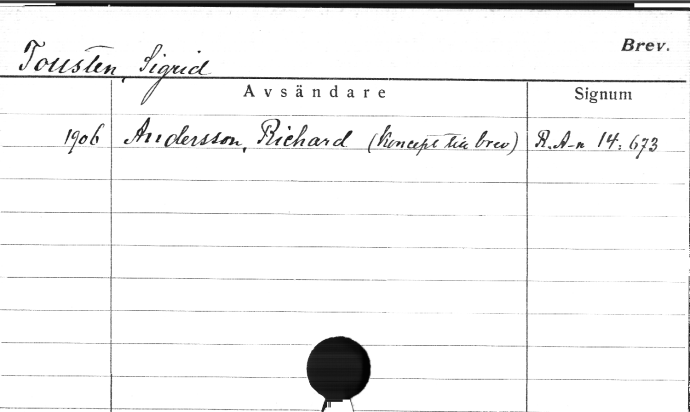 Brev.
Tousten, Sigrid
Avsändare Signum
1906 Andersson, Richard (Koncept till brev) R.A-n 14:673